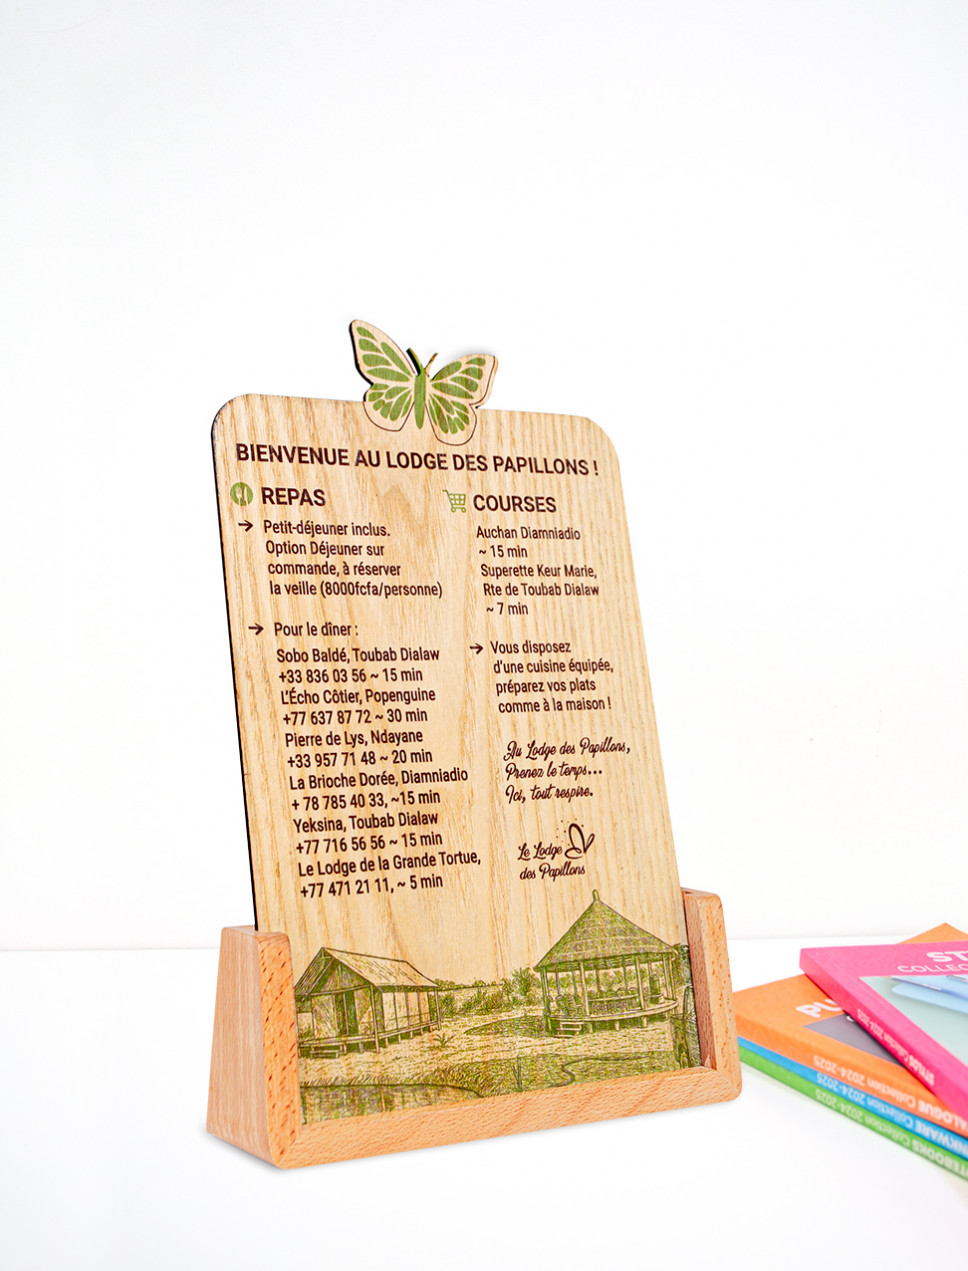 BIENVENUE AU LODGE DES PAPILLONS !
REPAS
→ Petit-déjeuner inclus.
Option Déjeuner sur
commande, à réserver
la veille (8000fcfa/personne)
→ Pour le dîner :
Sobo Baldé, Toubab Dialaw
+33 836 03 56 ~ 15 min
L'Écho Côtier, Popenguine
+77 637 87 72 ~ 30 min
Pierre de Lys, Ndayane
+33 957 71 48 ~ 20 min
La Brioche Dorée, Diamniadio
+ 78 785 40 33, ~15 min
Yeksina, Toubab Dialaw
+77 716 56 56 ~ 15 min
Le Lodge de la Grande Tortue,
+77 471 21 11, ~ 5 min
COURSES
Auchan Diamniadio
~ 15 min
Superette Keur Marie,
Rte de Toubab Dialaw
~ 7 min
→ Vous disposez
d'une cuisine équipée,
préparez vos plats
comme à la maison !
Au Lodge des Papillons,
Prenez le temps...
Ici, tout respire.
Le Lodge
des Papillons
ST
COLLEC
STYLOS Collection 2024-2025
ALOGUE Collection 2024-2025
NKWARE Collection 2024-2025
TEBOOKS Collection 2024-2025